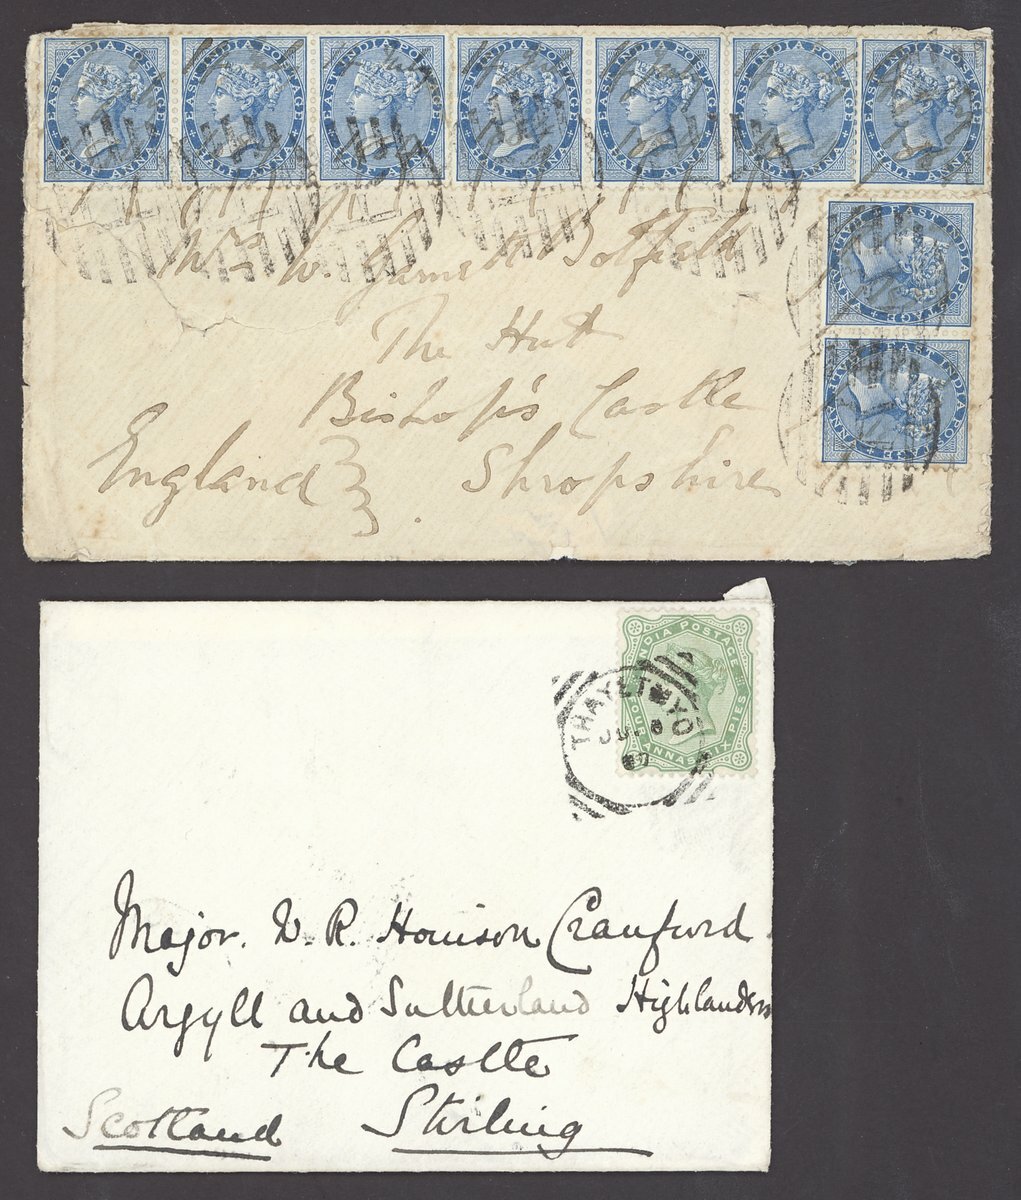 EAST INDIA POSTAGE EAST INDIA POSTAGE EAST INDIA POSTAGE EAST INDIA POSTAGE EAST INDIA POSTAGE EAST INDIA POSTAGE EAST INDIA POSTAGE
HALF ANNA HALF ANNA HALF ANNA HALF ANNA HALF ANNA HALF ANNA HALF ANNA
EAST INDIA POSTAGE
HALF ANNA
EAST INDIA POSTAGE
HALF ANNA
Mrs W. Garnett Botfield
The Hut
Bishop's Castle
England Shropshire
INDIA POSTAGE
FOUR ANNAS SIX PIES
THAYETMYO
JU 8
Major. W. R. Houison Craufurd
Argyll and Sutherland Highlanders
The Castle
Scotland Stirling